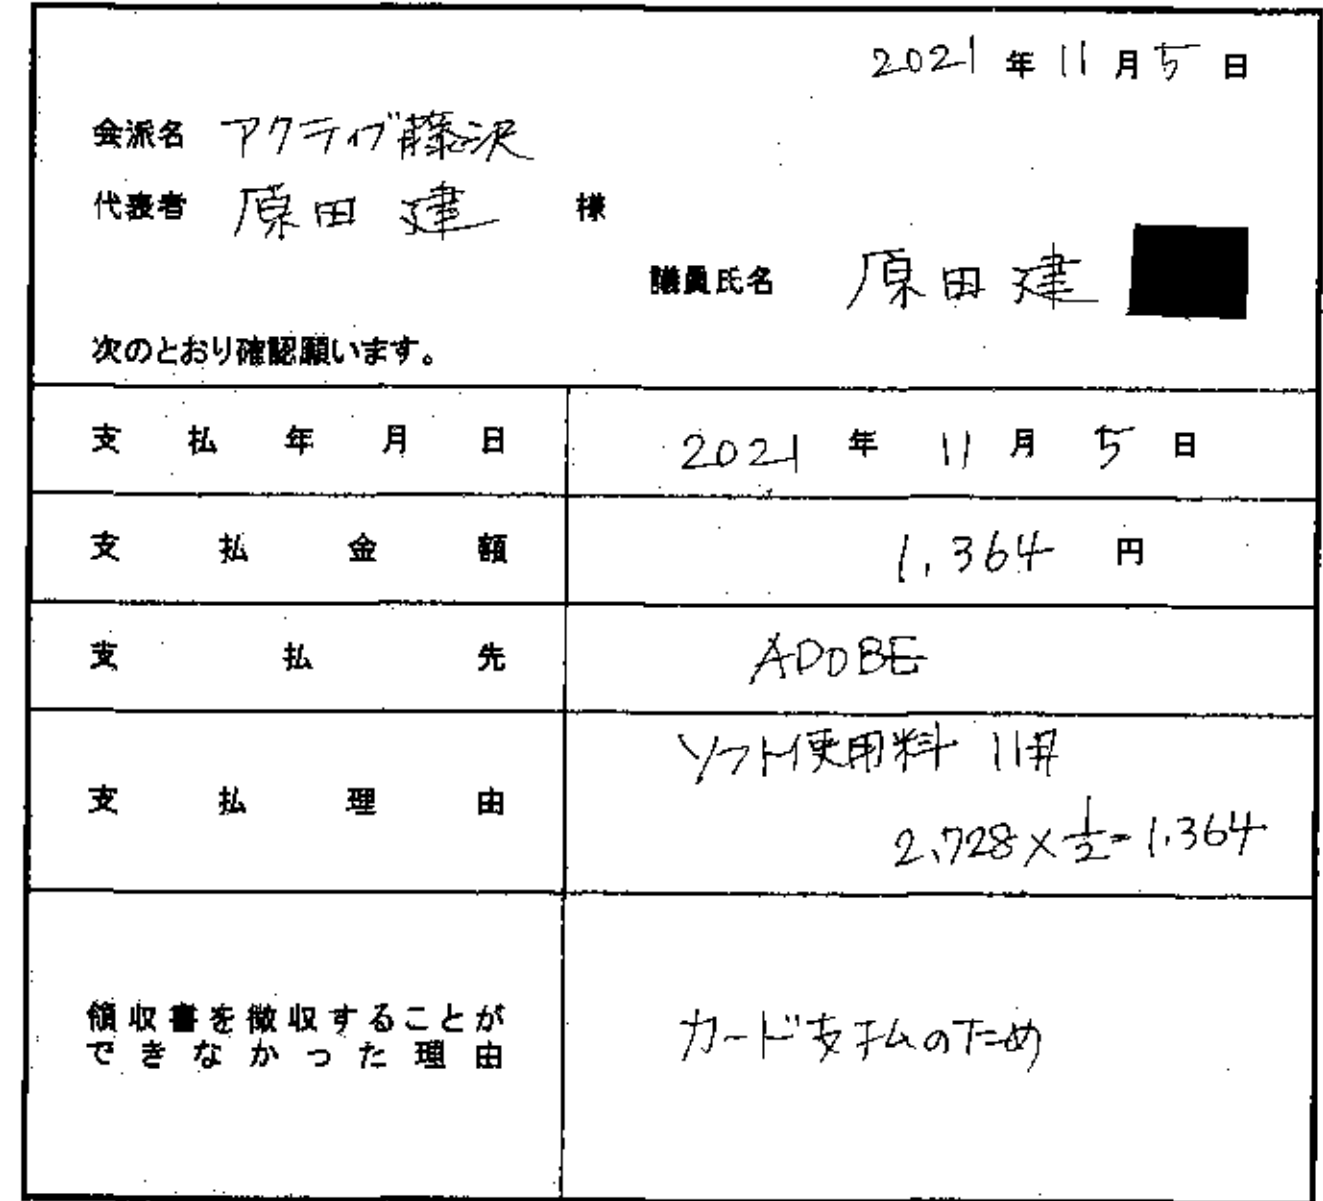 2021 年 11 月 5 日
会派名 アクティブ藤沢
代表者 原田 建 様
議員氏名 原田 建
次のとおり確認願います。
支払年月日 2021 年 11 月 5 日
支払金額 1,364 円
支払先 ADOBE
支払理由 ソフト使用料 11月
2,728×1/2=1,364
領収書を徴収することが
できなかった理由 カード支払のため